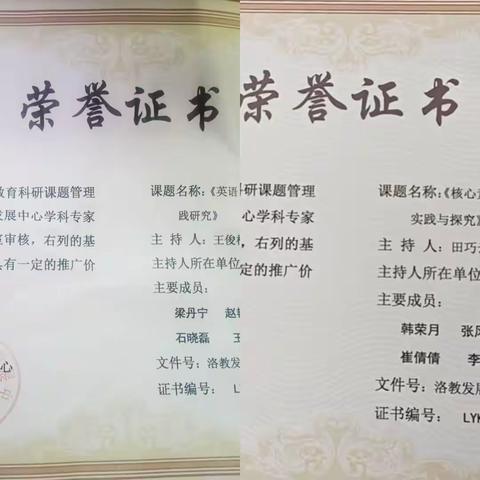 荣誉证书
教育科研课题管理
发展中心学科专家
审核，右列的基
具有一定的推广价
心
课题名称：《英语
践研究》
主 持 人：王俊
主持人所在单位
主要成员：
梁丹宁 赵
石晓磊 王
文件号：洛教发
证书编号： L
荣誉证书
研课题管理
心学科专家
，右列的基
定的推广价
课题名称：《核心
实践与探究》
主 持 人：田巧
主持人所在单位
主要成员：
韩荣月 张
崔倩倩 李
文件号：洛教发展
证书编号： LYK